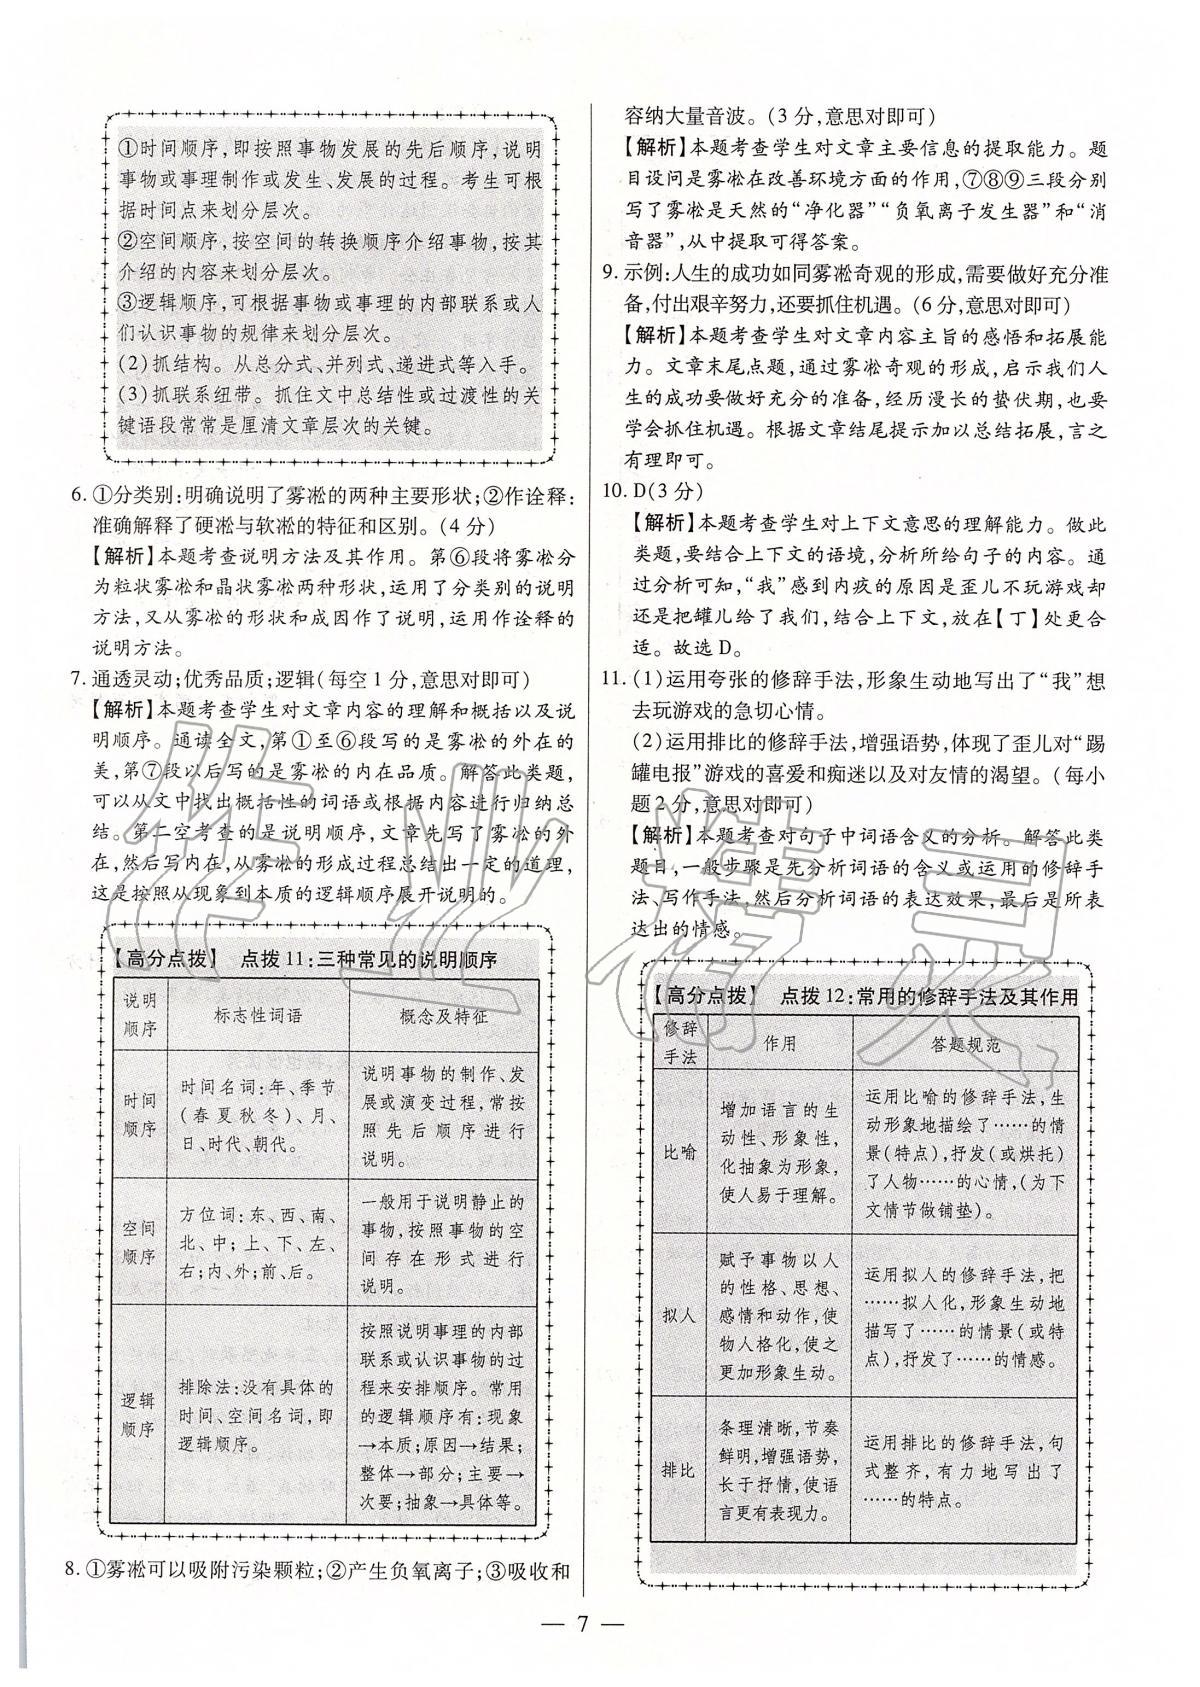 ①时间顺序,即按照事物发展的先后顺序,说明
事物或事理制作或发生、发展的过程。考生可根
据时间点来划分层次。
②空间顺序,按空间的转换顺序介绍事物,按其
介绍的内容来划分层次。
③逻辑顺序,可根据事物或事理的内部联系或人
们认识事物的规律来划分层次。
(2)抓结构。从总分式、并列式、递进式等入手。
(3)抓联系纽带。抓住文中总结性或过渡性的关
键语段常常是厘清文章层次的关键。
6. ①分类别:明确说明了雾凇的两种主要形状;②作诠释:
准确解释了硬凇与软凇的特征和区别。(4 分)
【解析】本题考查说明方法及其作用。第⑥段将雾凇分
为粒状雾凇和晶状雾凇两种形状,运用了分类别的说明
方法,又从雾凇的形状和成因作了说明,运用作诠释的
说明方法。
7. 通透灵动;优秀品质;逻辑(每空 1 分,意思对即可)
【解析】本题考查学生对文章内容的理解和概括以及说
明顺序。通读全文,第①至⑥段写的是雾凇的外在的
美,第⑦段以后写的是雾凇的内在品质。解答此类题,
可以从文中找出概括性的词语或根据内容进行归纳总
结。第二空考查的是说明顺序,文章先写了雾凇的外
在,然后写内在,从雾凇的形成过程总结出一定的道理,
这是按照从现象到本质的逻辑顺序展开说明的。
【高分点拨】 点拨 11:三种常见的说明顺序
说明
顺序
标志性词语
概念及特征
时间
顺序
时间名词:年、季节
(春夏秋冬)、月、
日、时代、朝代。
说明事物的制作、发
展或演变过程,常按
照先后顺序进行
说明。
空间
顺序
方位词:东、西、南、
北、中;上、下、左、
右;内、外;前、后。
一般用于说明静止的
事物,按照事物的空
间存在形式进行
说明。
逻辑
顺序
排除法:没有具体的
时间、空间名词,即
逻辑顺序。
按照说明事理的内部
联系或认识事物的过
程来安排顺序。常用
的逻辑顺序有:现象
→本质;原因→结果;
整体→部分;主要→
次要;抽象→具体等。
8. ①雾凇可以吸附污染颗粒;②产生负氧离子;③吸收和
容纳大量音波。(3 分,意思对即可)
【解析】本题考查学生对文章主要信息的提取能力。题
目设问是雾凇在改善环境方面的作用,⑦⑧⑨三段分别
写了雾凇是天然的“净化器”“负氧离子发生器”和“消
音器”,从中提取可得答案。
9. 示例:人生的成功如同雾凇奇观的形成,需要做好充分准
备,付出艰辛努力,还要抓住机遇。(6 分,意思对即可)
【解析】本题考查学生对文章内容主旨的感悟和拓展能
力。文章末尾点题,通过雾凇奇观的形成,启示我们人
生的成功要做好充分的准备,经历漫长的蛰伏期,也要
学会抓住机遇。根据文章结尾提示加以总结拓展,言之
有理即可。
10. D(3 分)
【解析】本题考查学生对上下文意思的理解能力。做此
类题,要结合上下文的语境,分析所给句子的内容。通
过分析可知,“我”感到内疚的原因是歪儿不玩游戏却
还是把罐儿给了我们,结合上下文,放在【丁】处更合
适。故选 D。
11. (1)运用夸张的修辞手法,形象生动地写出了“我”想
去玩游戏的急切心情。
(2)运用排比的修辞手法,增强语势,体现了歪儿对“踢
罐电报”游戏的喜爱和痴迷以及对友情的渴望。(每小
题 2 分,意思对即可)
【解析】本题考查对句子中词语含义的分析。解答此类
题目,一般步骤是先分析词语的含义或运用的修辞手
法、写作手法,然后分析词语的表达效果,最后是所表
达出的情感。
【高分点拨】 点拨 12:常用的修辞手法及其作用
修辞
手法
作用
答题规范
比喻
增加语言的生
动性、形象性,
化抽象为形象,
使人易于理解。
运用比喻的修辞手法,生
动形象地描绘了……的情
景(特点),抒发(或烘托)
了人物……的心情,(为下
文情节做铺垫)。
拟人
赋予事物以人
的性格、思想、
感情和动作,使
物人格化,使之
更加形象生动。
运用拟人的修辞手法,把
……拟人化,形象生动地
描写了……的情景(或特
点),抒发了……的情感。
排比
条理清晰,节奏
鲜明,增强语势,
长于抒情,使语
言更有表现力。
运用排比的修辞手法,句
式整齐,有力地写出了
……的特点。
— 7 —
作业精灵